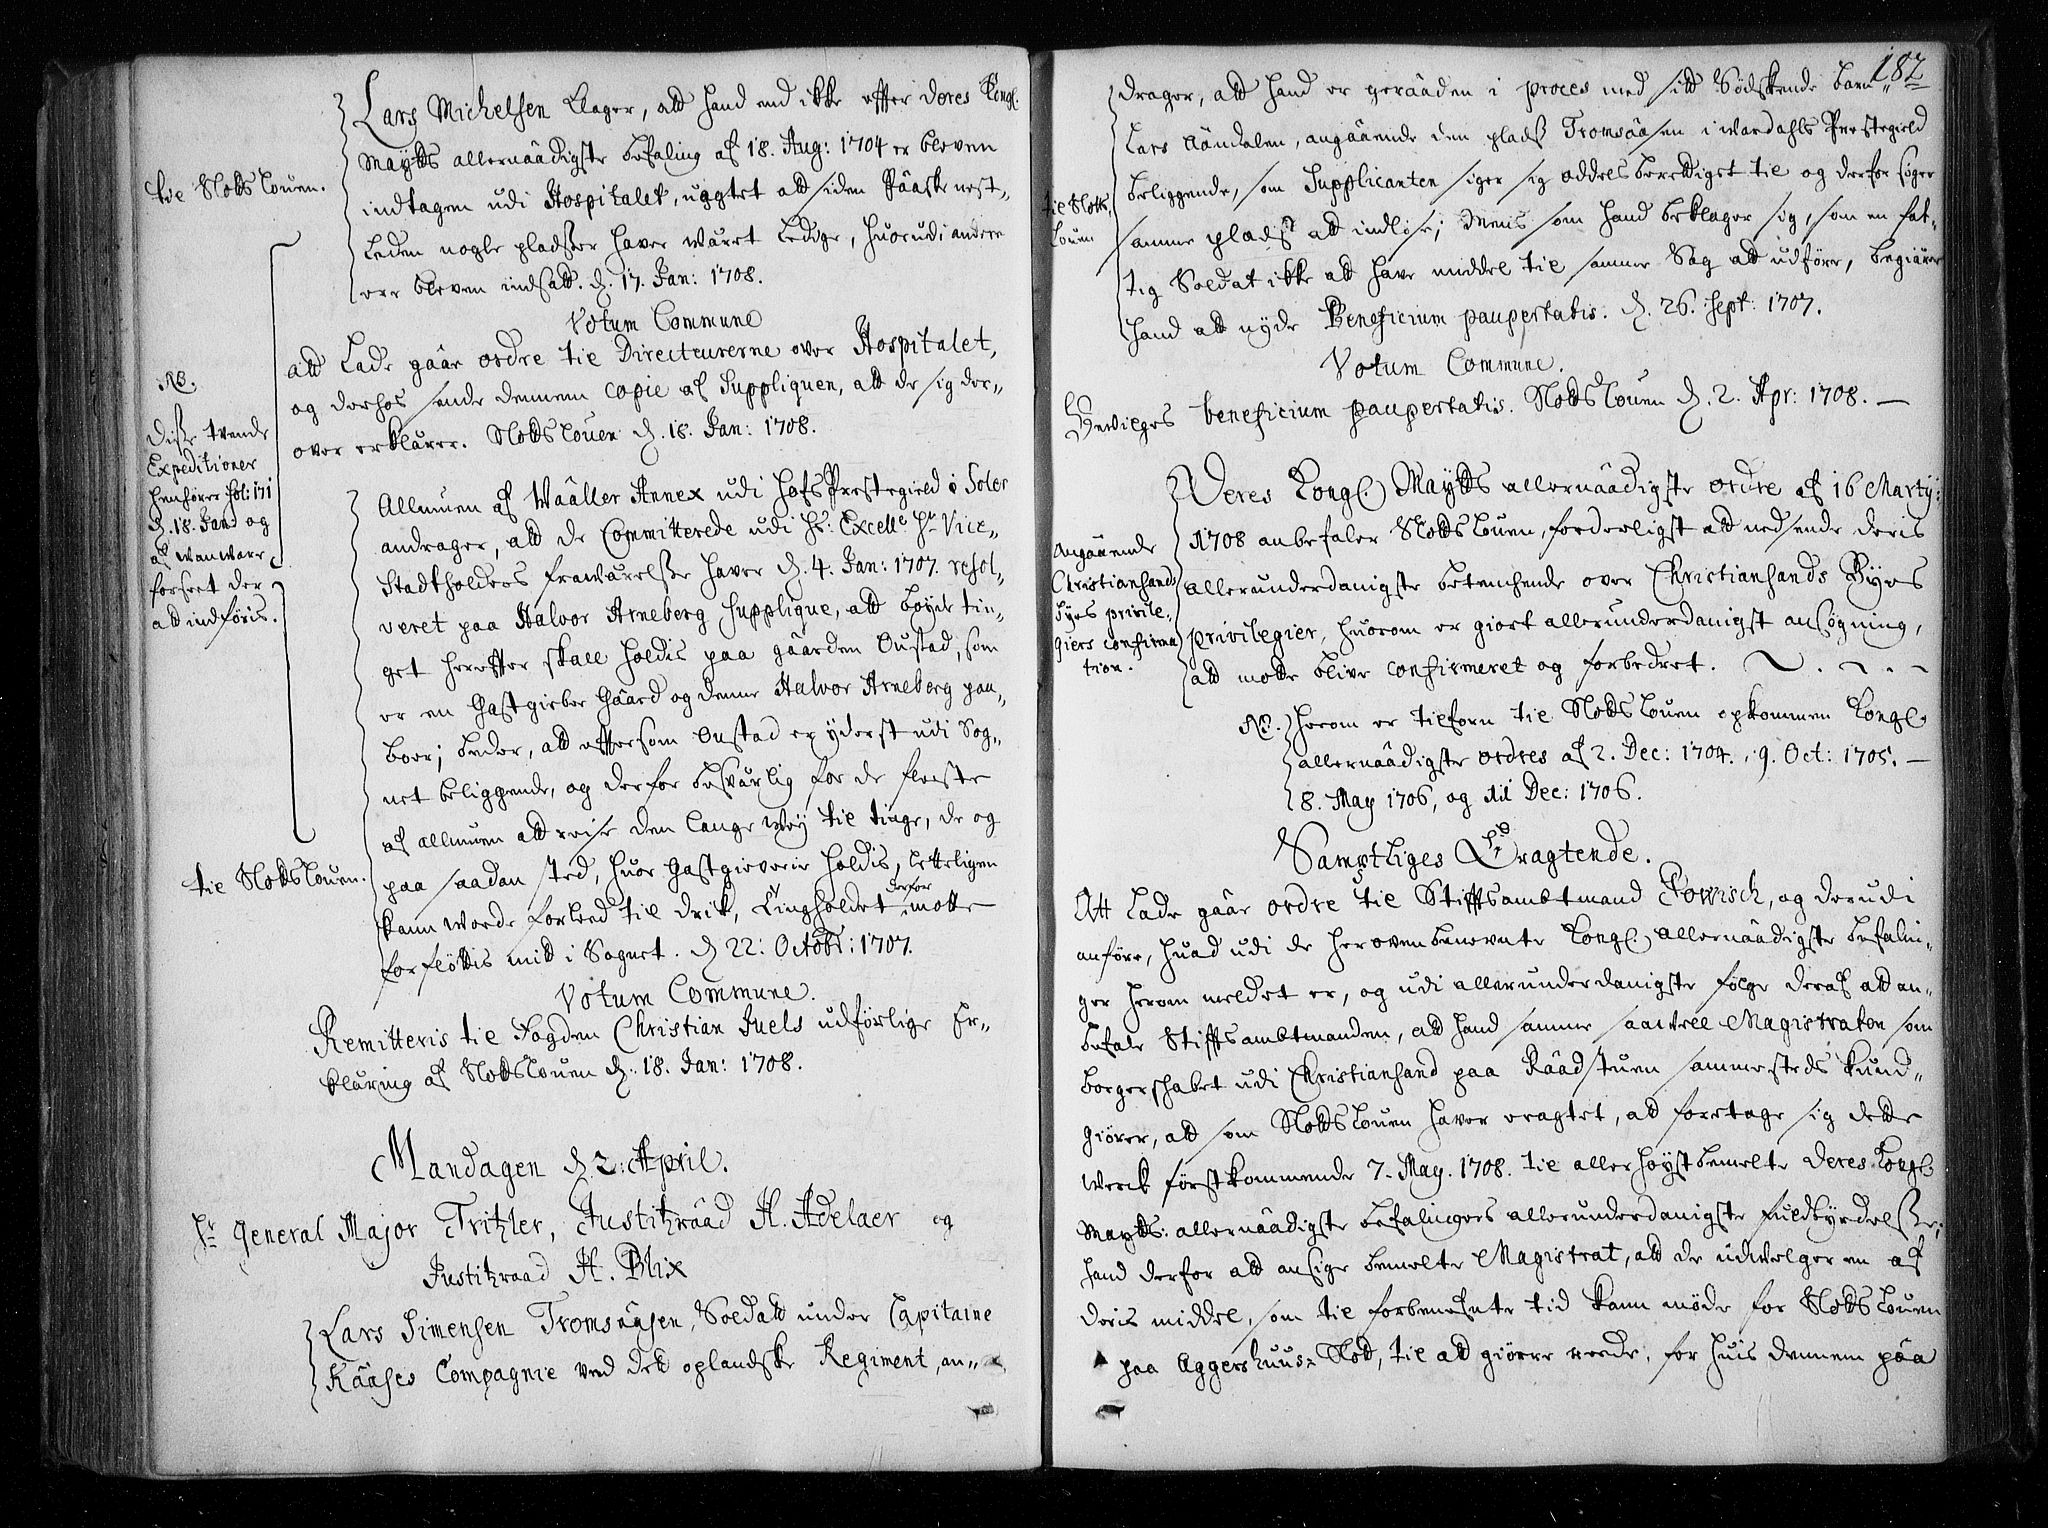 Lars Michelsen klager, att hand end ikke effter deres Kongl:
Maytts allernaadigste befaling af 18. Aug: 1704 er bleven
til Slotz Louen.
indtagen udi Hospitalet, uagtet att siden Paaske nest-
leden nogle pladser haver wæret ledige, huorudi andere
ere bleven indsatt. d. 17. Jan: 1708.
Votum Commune
att lade gaae ordre til Directeurerne over Hospitalet,
og derhos sende dennem copie af Suppliquen, att de sig der-
over erklærer. Slotzlouen d. 18. Jan: 1708.
NB.
Disse tvende
Expeditioner
henhører fol: 171
d. 18. Jan: og
af wanware
forseet der
att indføris.
Allmuen af Waaller Annex udi Hofs Prestegield i Soler
andrager, att de Committerede udi Hs: Excelle Hr Vice-
Stadtholders frawærelsse haver d. 4. Jan: 1707. resol-
veret paa Halvor Arneberg Supplique, att bøyde tin-
get hereffter skall holdis paa gaarden Oustad, som
er en Gastgieber Gaard og denne Halvor Arneberg paa-
boer; beder, att effersom Oustad er yderst udi Sog-
net beliggende, og derfor besværlig for de fleeste
af allmuen att reise den lange wey til tinge, de og
til Slotzlouen.
paa saadan sted, huor Gastgieverie holdis, letteligen
kann worde forleed til drik, Tingholdet derfor motte
forfløttis mitt i Sognet. d 22: Octobr: 1707.
Votum Commune.
Remitteris til Fogden Christian Juels udførlige Er-
klæring af Slotzlouen d. 18. Jan: 1708.
Mandagen d. 2. April.
Hr General Major Tritzler, Justitzraad H. Adelaer og
Justitzraad H. Blix
Lars Simensen Tromsaasen, Soldatt under Capitaine
Kaases Compagnie ved det oplandske Regiment, an-
182
drager, att hand er geraaden i proces med sitt Sødskende barn
Lars Aandalen, angaaende den plads Tromsaasen i Wardahls Prestegield
til Slotz
Louen
beliggende, som Supplicanten siger sig oddelsberettiget til og derfor søger
samme plads att indløse; Mens som hand beklager sig, som en fat-
tig Soldat ikke att have middel til samme Sag att udføre, begiærer
hand att nyde Beneficium paupertatis. d. 26. Sept: 1707.
Votum Commune.
Bevilges beneficium paupertatis. Slotzlouen d. 2. Apr: 1708.
Deres Kongl. Maytts allernaadigste ordre af 16 Marty:
1708 anbefaler Slotzlouen, forderligst att nedsende deris
Angaaende
Christiansands
byes privile-
giers confirma
tion.
allerunderdanigste betenchende over Christiansands Byes
privilegier, huorom er giort allerunderdanigst ansøgning,
att motte blive confirmeret og forbedret.
NB. Herom er tilforn til Slotzlouen opkommen Kongl.
allernaadigste ordres af 2. Dec: 1704., 9. Oct: 1705.
8. May 1706, og Dec: 1706.
Samptliges Eragtende.
Att lade gaae ordre til Stifftsambtmand Powisch, og derudi
anføre, huad udi de herovenbenevnte Kongl. allernaadigste befalin-
ger herom meldet er, og udi allerunderdanigste følge deraf att an-
befale Stifftsambtmanden, att hand samme saavell Magistraten som
borgerschabet udi Christiansand paa Raadstuen sammesteds kund-
giører, att som Slotzlouen haver eragtet, att foretage sig dette
werck førstkommende 7. May. 1708. til allerhøystbemelte Deres Kongl
Maytts: allernaadigste befalingers allerunderdanigste fuldbyrdelsse;
hand derfor att ansige bemelte Magistrat, att de udwelger en af
deris middel, som til forbenefnte tid kann møde for Slotzlouen
paa Aggershuus-Slot, til att giøre reede, for huis dennem paa